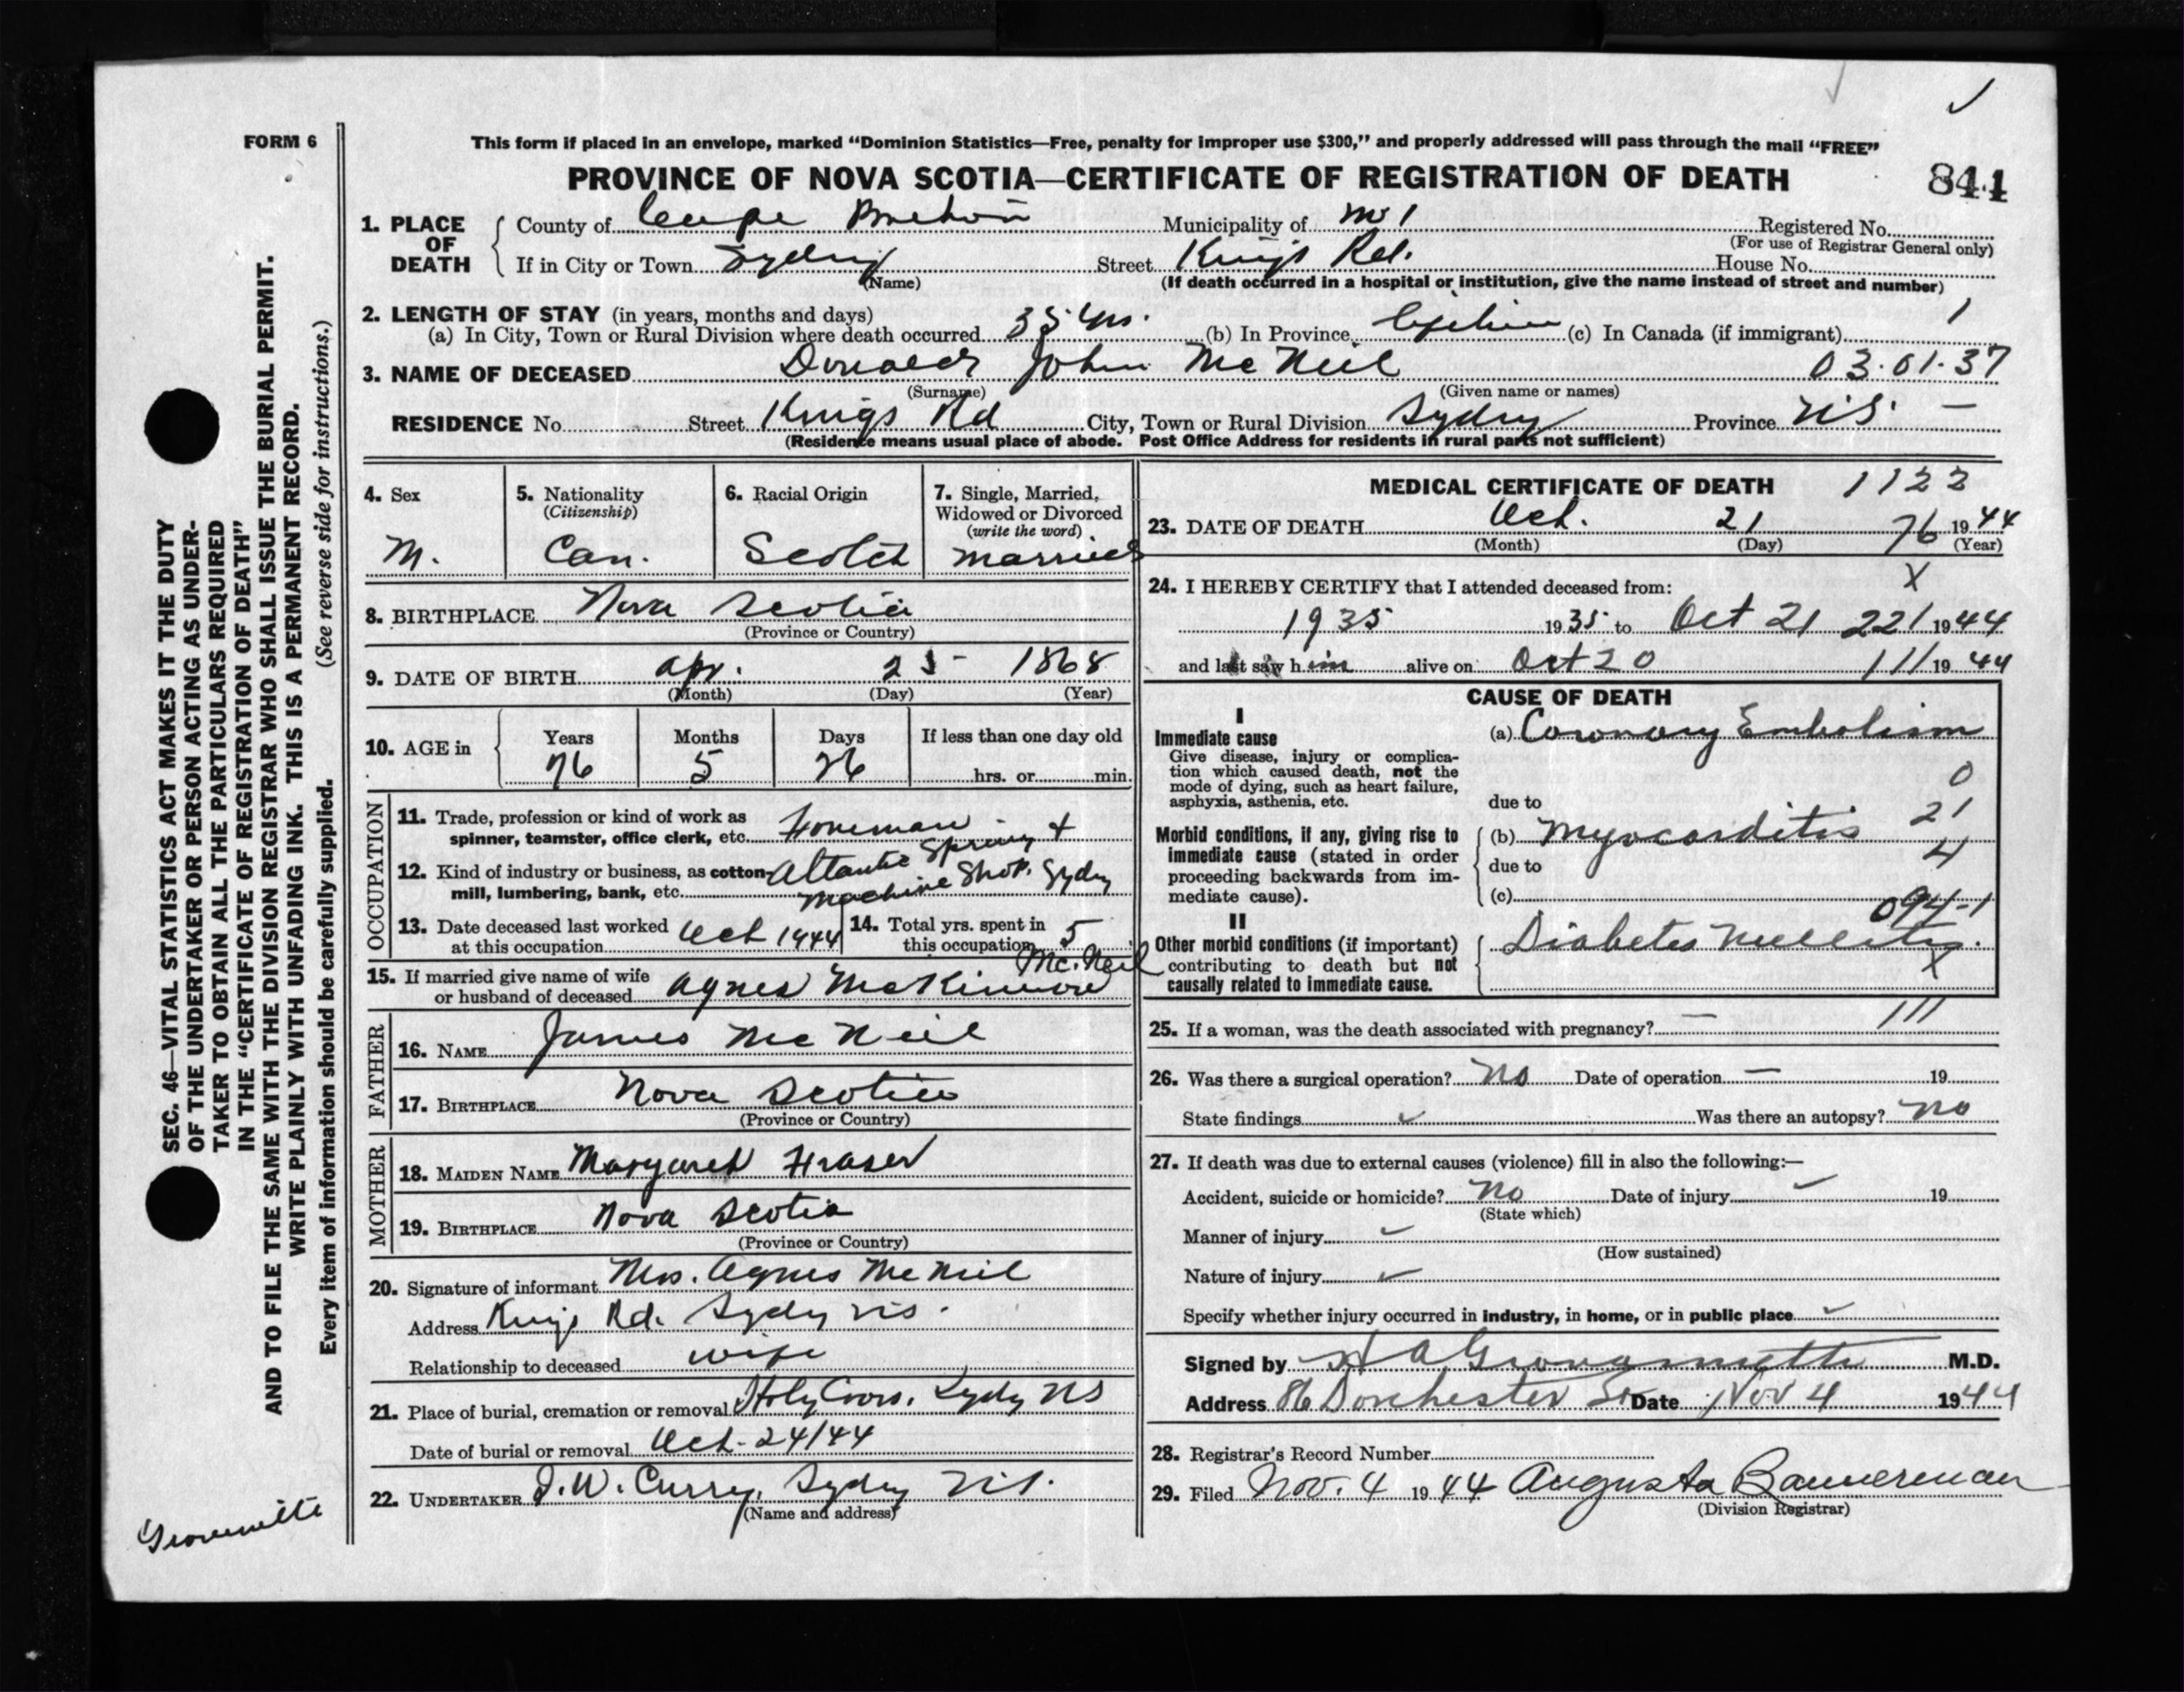 FORM 6
This form if placed in an envelope, marked “Dominion Statistics—Free, penalty for improper use $300,” and properly addressed will pass through the mail “FREE”
PROVINCE OF NOVA SCOTIA—CERTIFICATE OF REGISTRATION OF DEATH 844
1. PLACE OF DEATH County of Cape Breton Municipality of Registered No.
(For use of Registrar General only)
If in City or Town Sydney Street Kings Rd. House No.
(Name) (If death occurred in a hospital or institution, give the name instead of street and number)
2. LENGTH OF STAY (in years, months and days) 1
(a) In City, Town or Rural Division where death occurred 35 yrs. (b) In Province Lifetime (c) In Canada (if immigrant)
3. NAME OF DECEASED Donald John McNeil 03·01·37
(Surname) (Given name or names)
RESIDENCE No. Street Kings Rd City, Town or Rural Division Sydney Province N.S. —
(Residence means usual place of abode. Post Office Address for residents in rural parts not sufficient)
4. Sex M.
5. Nationality (Citizenship) Can.
6. Racial Origin Scotch
7. Single, Married, Widowed or Divorced (write the word) Married
8. BIRTHPLACE Nova Scotia
(Province or Country)
9. DATE OF BIRTH Apr. 25 1868
(Month) (Day) (Year)
10. AGE in Years 76 Months 5 Days 26 If less than one day old hrs. or min.
OCCUPATION
11. Trade, profession or kind of work as spinner, teamster, office clerk, etc. Foreman
12. Kind of industry or business, as cotton-mill, lumbering, bank, etc. Atlantic Spring + Machine Shop. Sydney
13. Date deceased last worked at this occupation Oct 1944
14. Total yrs. spent in this occupation 5
15. If married give name of wife or husband of deceased Agnes McKinnon Mc.Neil
FATHER
16. NAME James McNeil
17. BIRTHPLACE Nova Scotia
(Province or Country)
MOTHER
18. MAIDEN NAME Margaret Fraser
19. BIRTHPLACE Nova Scotia
(Province or Country)
20. Signature of informant Mrs. Agnes McNeil
Address Kings Rd. Sydney NS.
Relationship to deceased wife
21. Place of burial, cremation or removal Holy Cross, Sydney NS
Date of burial or removal Oct-24/44
22. UNDERTAKER J.W. Curry, Sydney N.S.
(Name and address)
MEDICAL CERTIFICATE OF DEATH 1122
23. DATE OF DEATH Oct. 21 76 1944
(Month) (Day) (Year)
24. I HEREBY CERTIFY that I attended deceased from: X
1935 1935 to Oct 21 221 1944
and last saw him alive on Oct 20 111 1944
CAUSE OF DEATH
I
Immediate cause
Give disease, injury or complication which caused death, not the mode of dying, such as heart failure, asphyxia, asthenia, etc.
(a) Coronary Embolism
0
due to
21
Morbid conditions, if any, giving rise to immediate cause (stated in order proceeding backwards from immediate cause).
(b) Myocarditis
4
due to
(c)
094-1
II
Other morbid conditions (if important) contributing to death but not causally related to immediate cause.
Diabetes Mellitus.
X
25. If a woman, was the death associated with pregnancy? — 111
26. Was there a surgical operation? No Date of operation — 19
State findings Was there an autopsy? No
27. If death was due to external causes (violence) fill in also the following:—
Accident, suicide or homicide? No Date of injury 19
(State which)
Manner of injury
(How sustained)
Nature of injury
Specify whether injury occurred in industry, in home, or in public place
Signed by M.D.
Address 86 Dorchester St Date Nov 4 1944
28. Registrar’s Record Number
29. Filed Nov. 4 1944 Augusta Bannerman
(Division Registrar)
SEC. 46—VITAL STATISTICS ACT MAKES IT THE DUTY
OF THE UNDERTAKER OR PERSON ACTING AS UNDER-
TAKER TO OBTAIN ALL THE PARTICULARS REQUIRED
IN THE “CERTIFICATE OF REGISTRATION OF DEATH”
AND TO FILE THE SAME WITH THE DIVISION REGISTRAR WHO SHALL ISSUE THE BURIAL PERMIT.
WRITE PLAINLY WITH UNFADING INK. THIS IS A PERMANENT RECORD.
Every item of information should be carefully supplied. (See reverse side for instructions.)